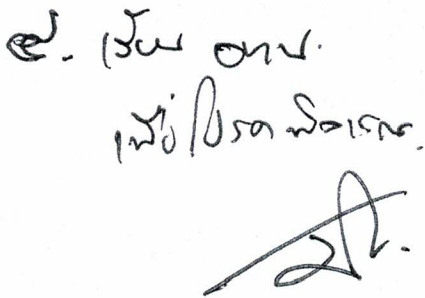 ๕. เรียน อทบ.
เพื่อโปรดพิจารณา